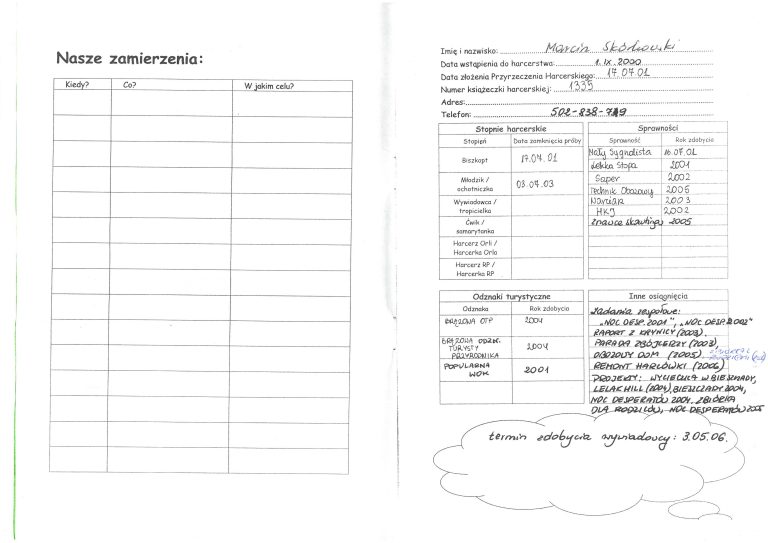 Nasze zamierzenia:
Kiedy? Co? W jakim celu?
Imię i nazwisko: Marcin
Data wstąpienia do harcerstwa: 1. IX. 2000
Data złożenia Przyrzeczenia Harcerskiego: 17.07.01
Numer książeczki harcerskiej: 1335
Adres:
Telefon: 502-838-719
Stopnie harcerskie
Stopień Data zamknięcia próby
Biszkopt 17.07.01
Młodzik / ochotniczka 03.07.03
Wywiadowca / tropicielka
Ćwik / samarytanka
Harcerz Orli / Harcerka Orla
Harcerz RP / Harcerka RP
Sprawności
Sprawność Rok zdobycia
Mały Sygnalista 16.07.01
Lekka Stopa 2001
Saper 2002
Technik Obozowy 2006
Narciarz 2003
HKJ 2002
Znawca Skautingu 2005
Odznaki turystyczne
Odznaka Rok zdobycia
BRĄZOWA OTP 2004
BRĄZOWA ODZN. TURYSTY PRZYRODNIKA 2004
POPULARNA WOK 2001
Inne osiągnięcia
Zadania zespołowe:
"NOC DESP. 2001", "NOC DESP. 2002"
RAPORT Z KRYNICY (2003),
PARADA ZBÓJKERZY (2003),
OBOZOWY DOM (2005),
REMONT HARCÓWKI (2006)
PROJEKTY: WYCIECZKA W BIESZCZADY,
LELAKHILL (2004), BIESZCZADY 2004,
NOC DESPERATÓW 2004, ZBIÓRKA
DLA RODZICÓW, NOC DESPERATÓW 2005
termin zdobycia wywiadowcy: 3.05.06.